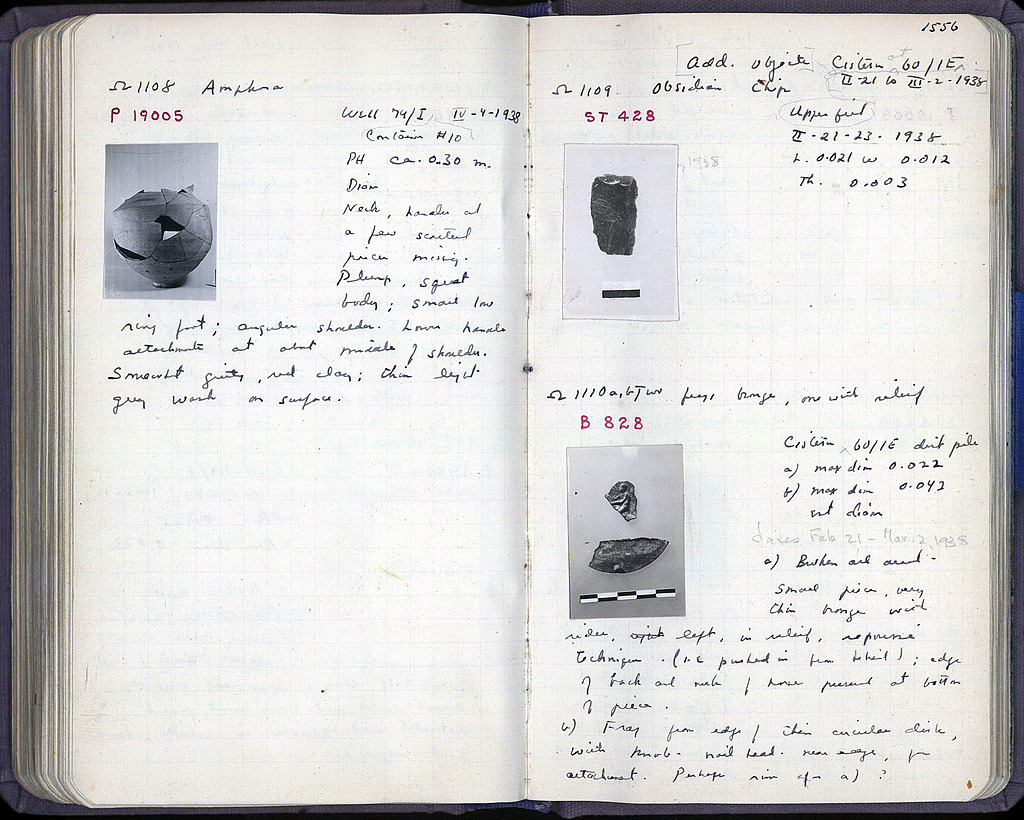 Ω 1108 Amphora
P 19005
Well 79/I IV-4-1938
Container #10
PH ca. 0.30 m.
Diam
Neck, handles and
a few scattered
pieces missing.
Plump, squat
body; small low
ring foot; angular shoulder. Lower handle
attachments at about middle of shoulder.
Somewhat gritty, red clay; thin light
grey wash on surface.
1556
[Add. objects Cistern at 60/IE.
II-21 to III-2-1938
Ω 1109 Obsidian Chip
ST 428
Upper fill
II-21-23-1938
L. 0.021 W 0.012
Th. 0.003
, 1938
Ω 1110 a, b Two frags bronze, one with relief
B 828
Cistern 60/IE dirt pile
a) max dim 0.022
b) max dim 0.043
est diam
dates Feb 21 - Mar. 2, 1938
a) Broken all around.
Small piece, very
thin bronze with
rider, left, in relief, repoussé
technique. (i.e. pushed in from behind); edge
of back and neck of horse preserved at bottom
of piece.
b) Frag from edge of thin circular disk,
with knob-nail head near edge, for
attachment. Perhaps rim of a) ?